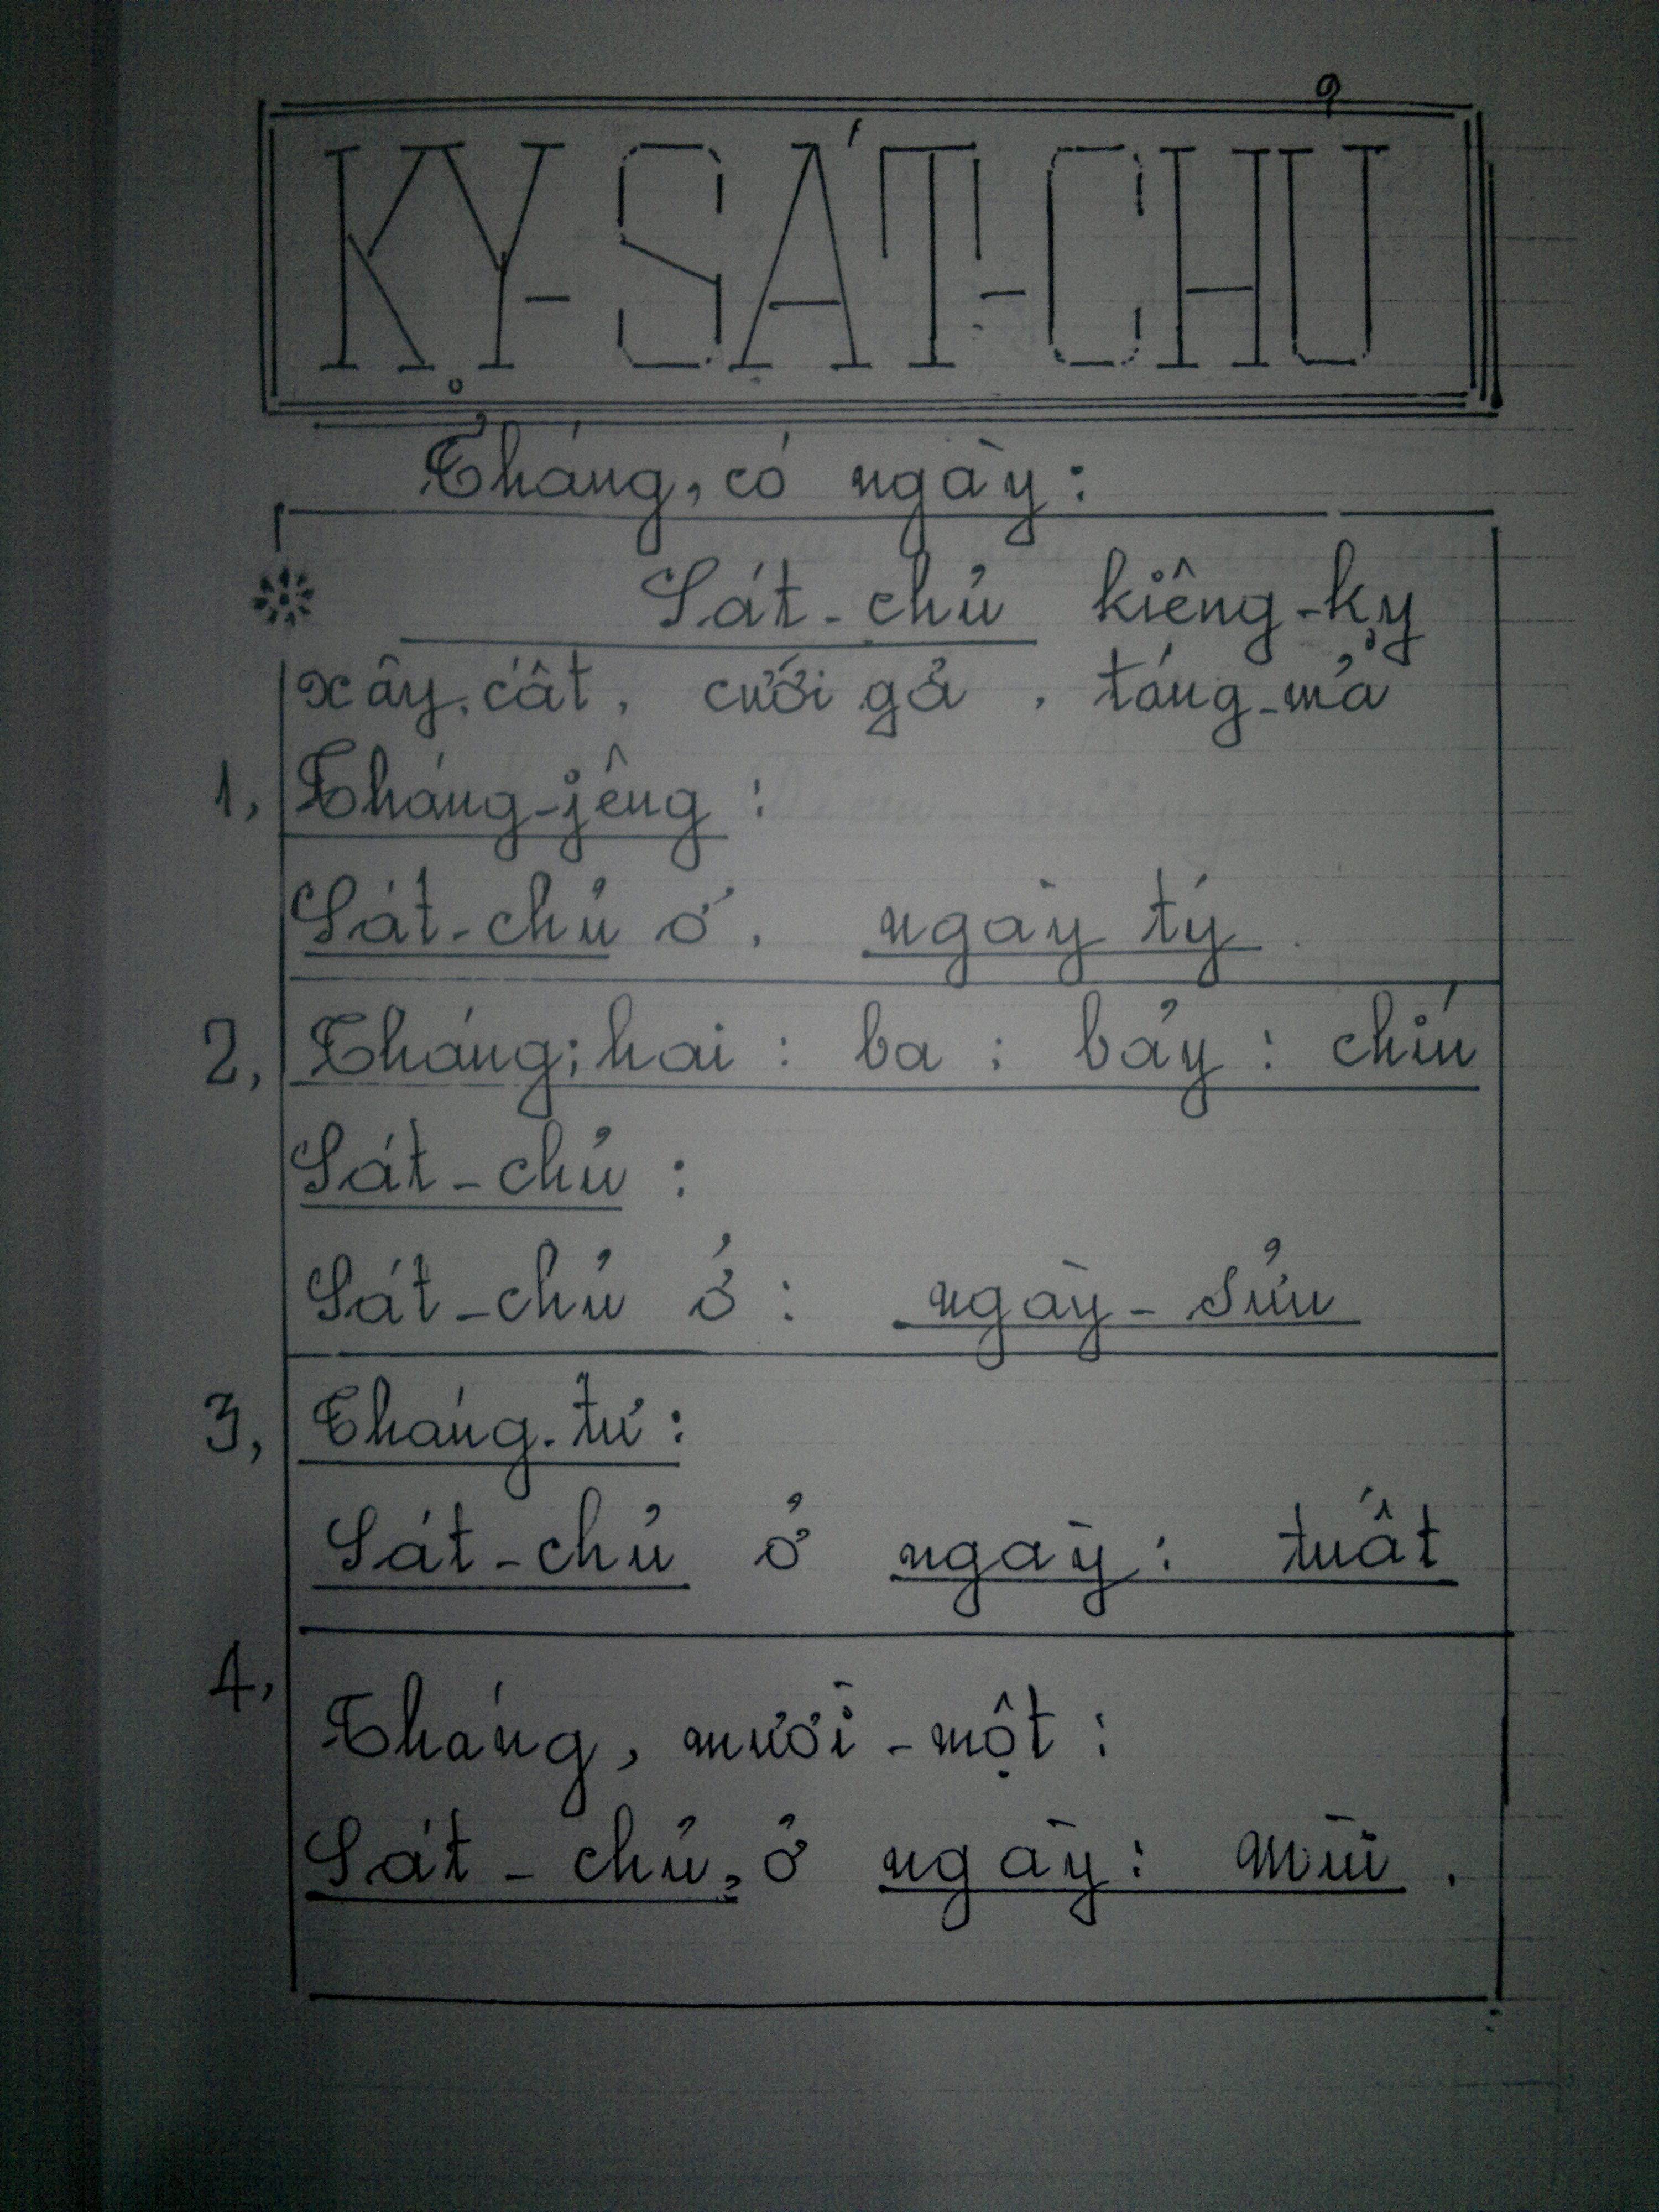 KỴ-SÁT-CHỦ
Tháng, có ngày:
Sát-chủ kiêng-kỵ
xây, cất, cưới gả, táng-mả
1, Tháng-jêng:
Sát-chủ ở, ngày tý
2, Tháng; hai: ba: bảy: chín
Sát-chủ:
Sát-chủ ở: ngày-sửu
3, Tháng.tư:
Sát-chủ ở ngày: tuất
4, Tháng, mười-một:
Sát-chủ, ở ngày: mùi.